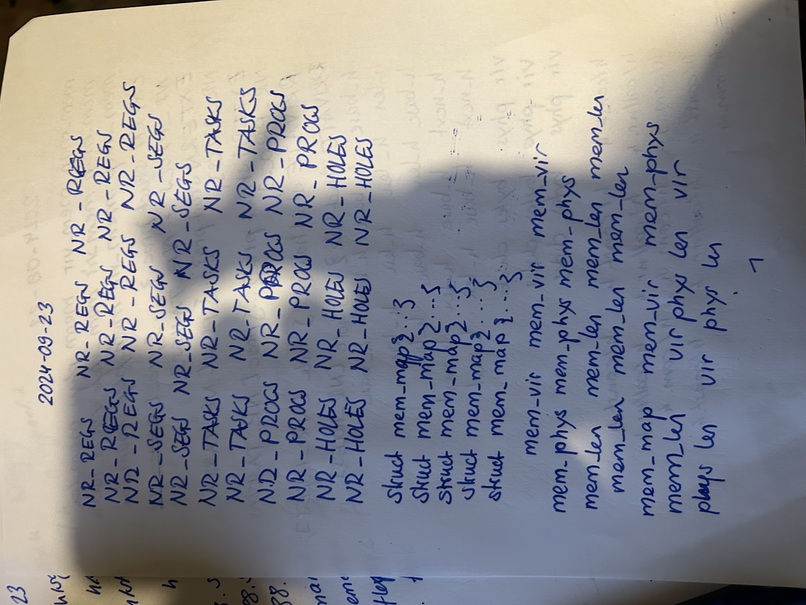 2024-09-23
NR_REGS NR_REGS NR_REGS
NR_REGS NR_REGS NR_REGS
NR_REGS NR_REGS NR_REGS
NR_SEGS NR_SEGS NR_SEGS
NR_SEGS NR_SEGS NR_SEGS
NR_TASKS NR_TASKS NR_TASKS
NR_TASKS NR_TASKS NR_TASKS
NR_PROCS NR_PROCS NR_PROCS
NR_PROCS NR_PROCS NR_PROCS
NR_HOLES NR_HOLES NR_HOLES
NR_HOLES NR_HOLES NR_HOLES
struct mem_map {...}
struct mem_map {...}
struct mem_map {...}
struct mem_map {...}
struct mem_map {...}
mem_vir mem_vir mem_vir
mem_phys mem_phys mem_phys
mem_len mem_len mem_len mem_len
mem_len mem_len mem_len
mem_map mem_vir mem_phys
mem_len vir phys len vir
phys len vir phys len
1
23